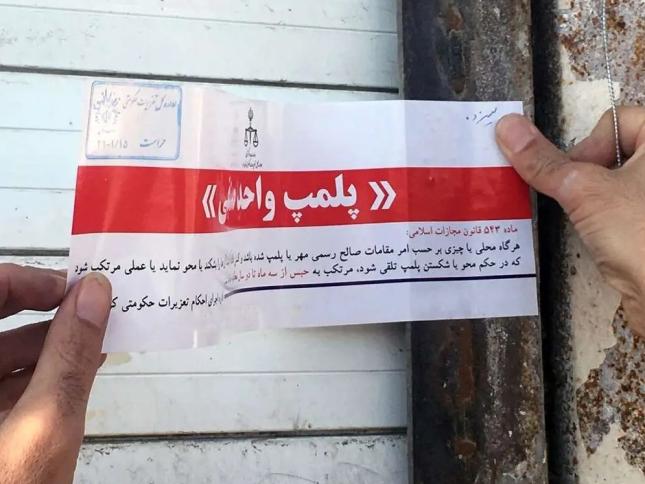 حراست
« پلمپ واحد »
ماده ۵۴۳ قانون مجازات اسلامی:
هرگاه محلی یا چیزی بر حسب امر مقامات صالح رسمی مهر یا پلمپ شده باشد و کسی بشکند یا محو نماید یا عملی مرتکب شود
که در حکم محو یا شکستن پلمپ تلقی شود، مرتکب به حبس از سه ماه تا دو سال
اجرای احکام تعزیرات حکومتی